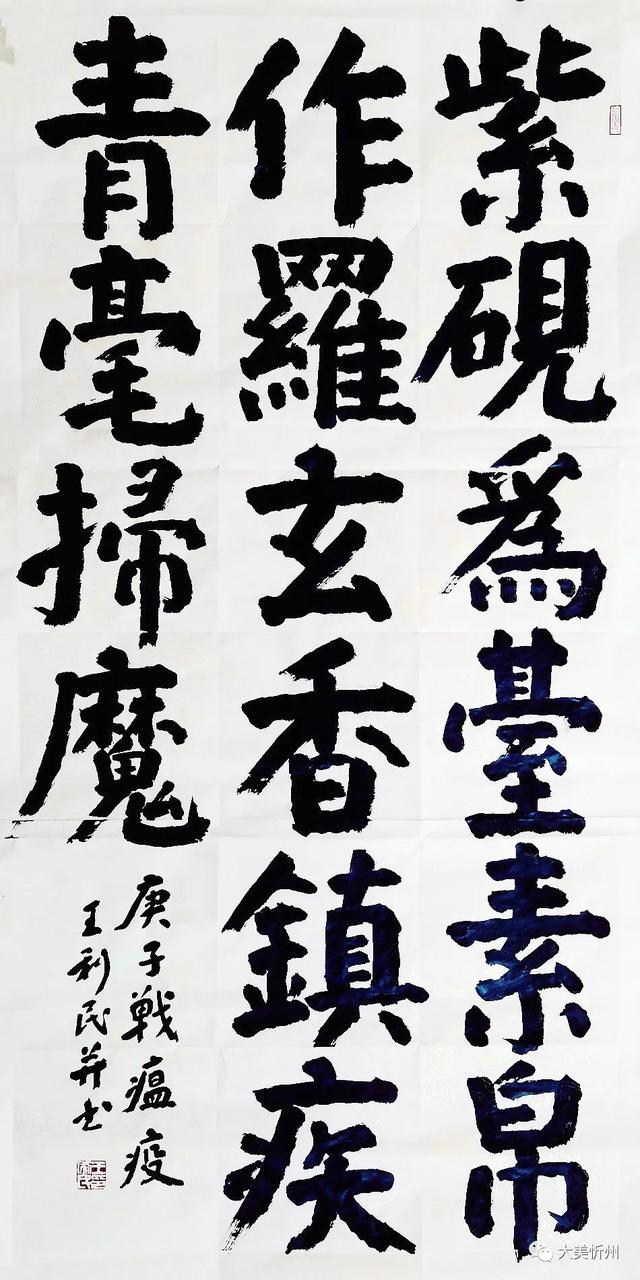 紫硯爲臺素帛
作羅玄香鎮疾
青毫掃魔
庚子戰瘟疫
王利民并书
大美忻州